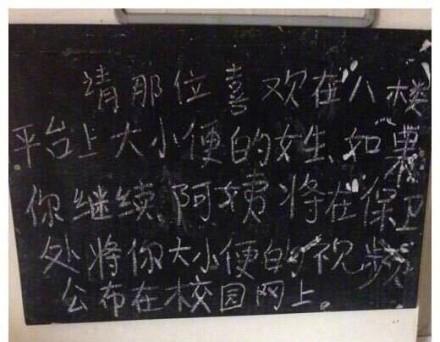 请那位喜欢在八楼
平台上大小便的女生,如果
你继续,阿姨将在保卫
处将你大小便的视频
公布在校园网上。